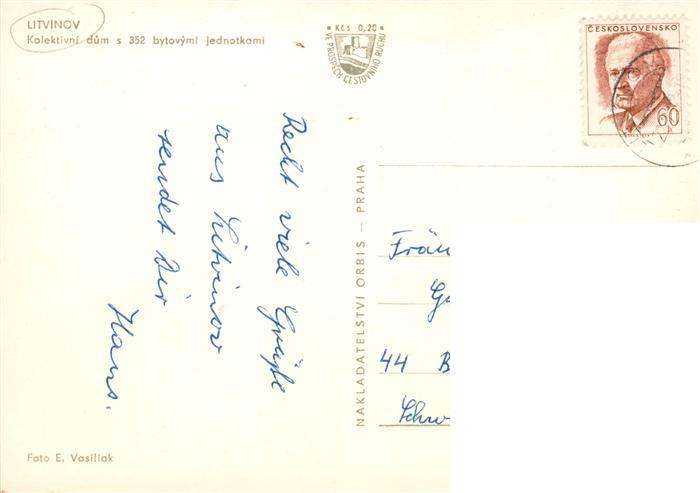 LITVÍNOV
Kolektivní dům s 352 bytovými jednotkami
Kčs 0,20
VE PROSPĚCH CESTOVNÍHO RUCHU
ČESKOSLOVENSKO
60
Recht viele Grüße
aus Litvinov
sendet Dir
Hans.
NAKLADATELSTVÍ ORBIS – PRAHA
44 B
Foto E. Vasiliak